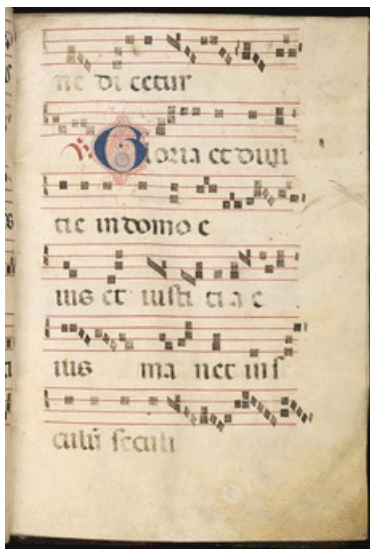 ne di cetur
V. Gloria et diuiti
tie in domo e
ius et iusti ti a e
ius ma net in s
culū seculi